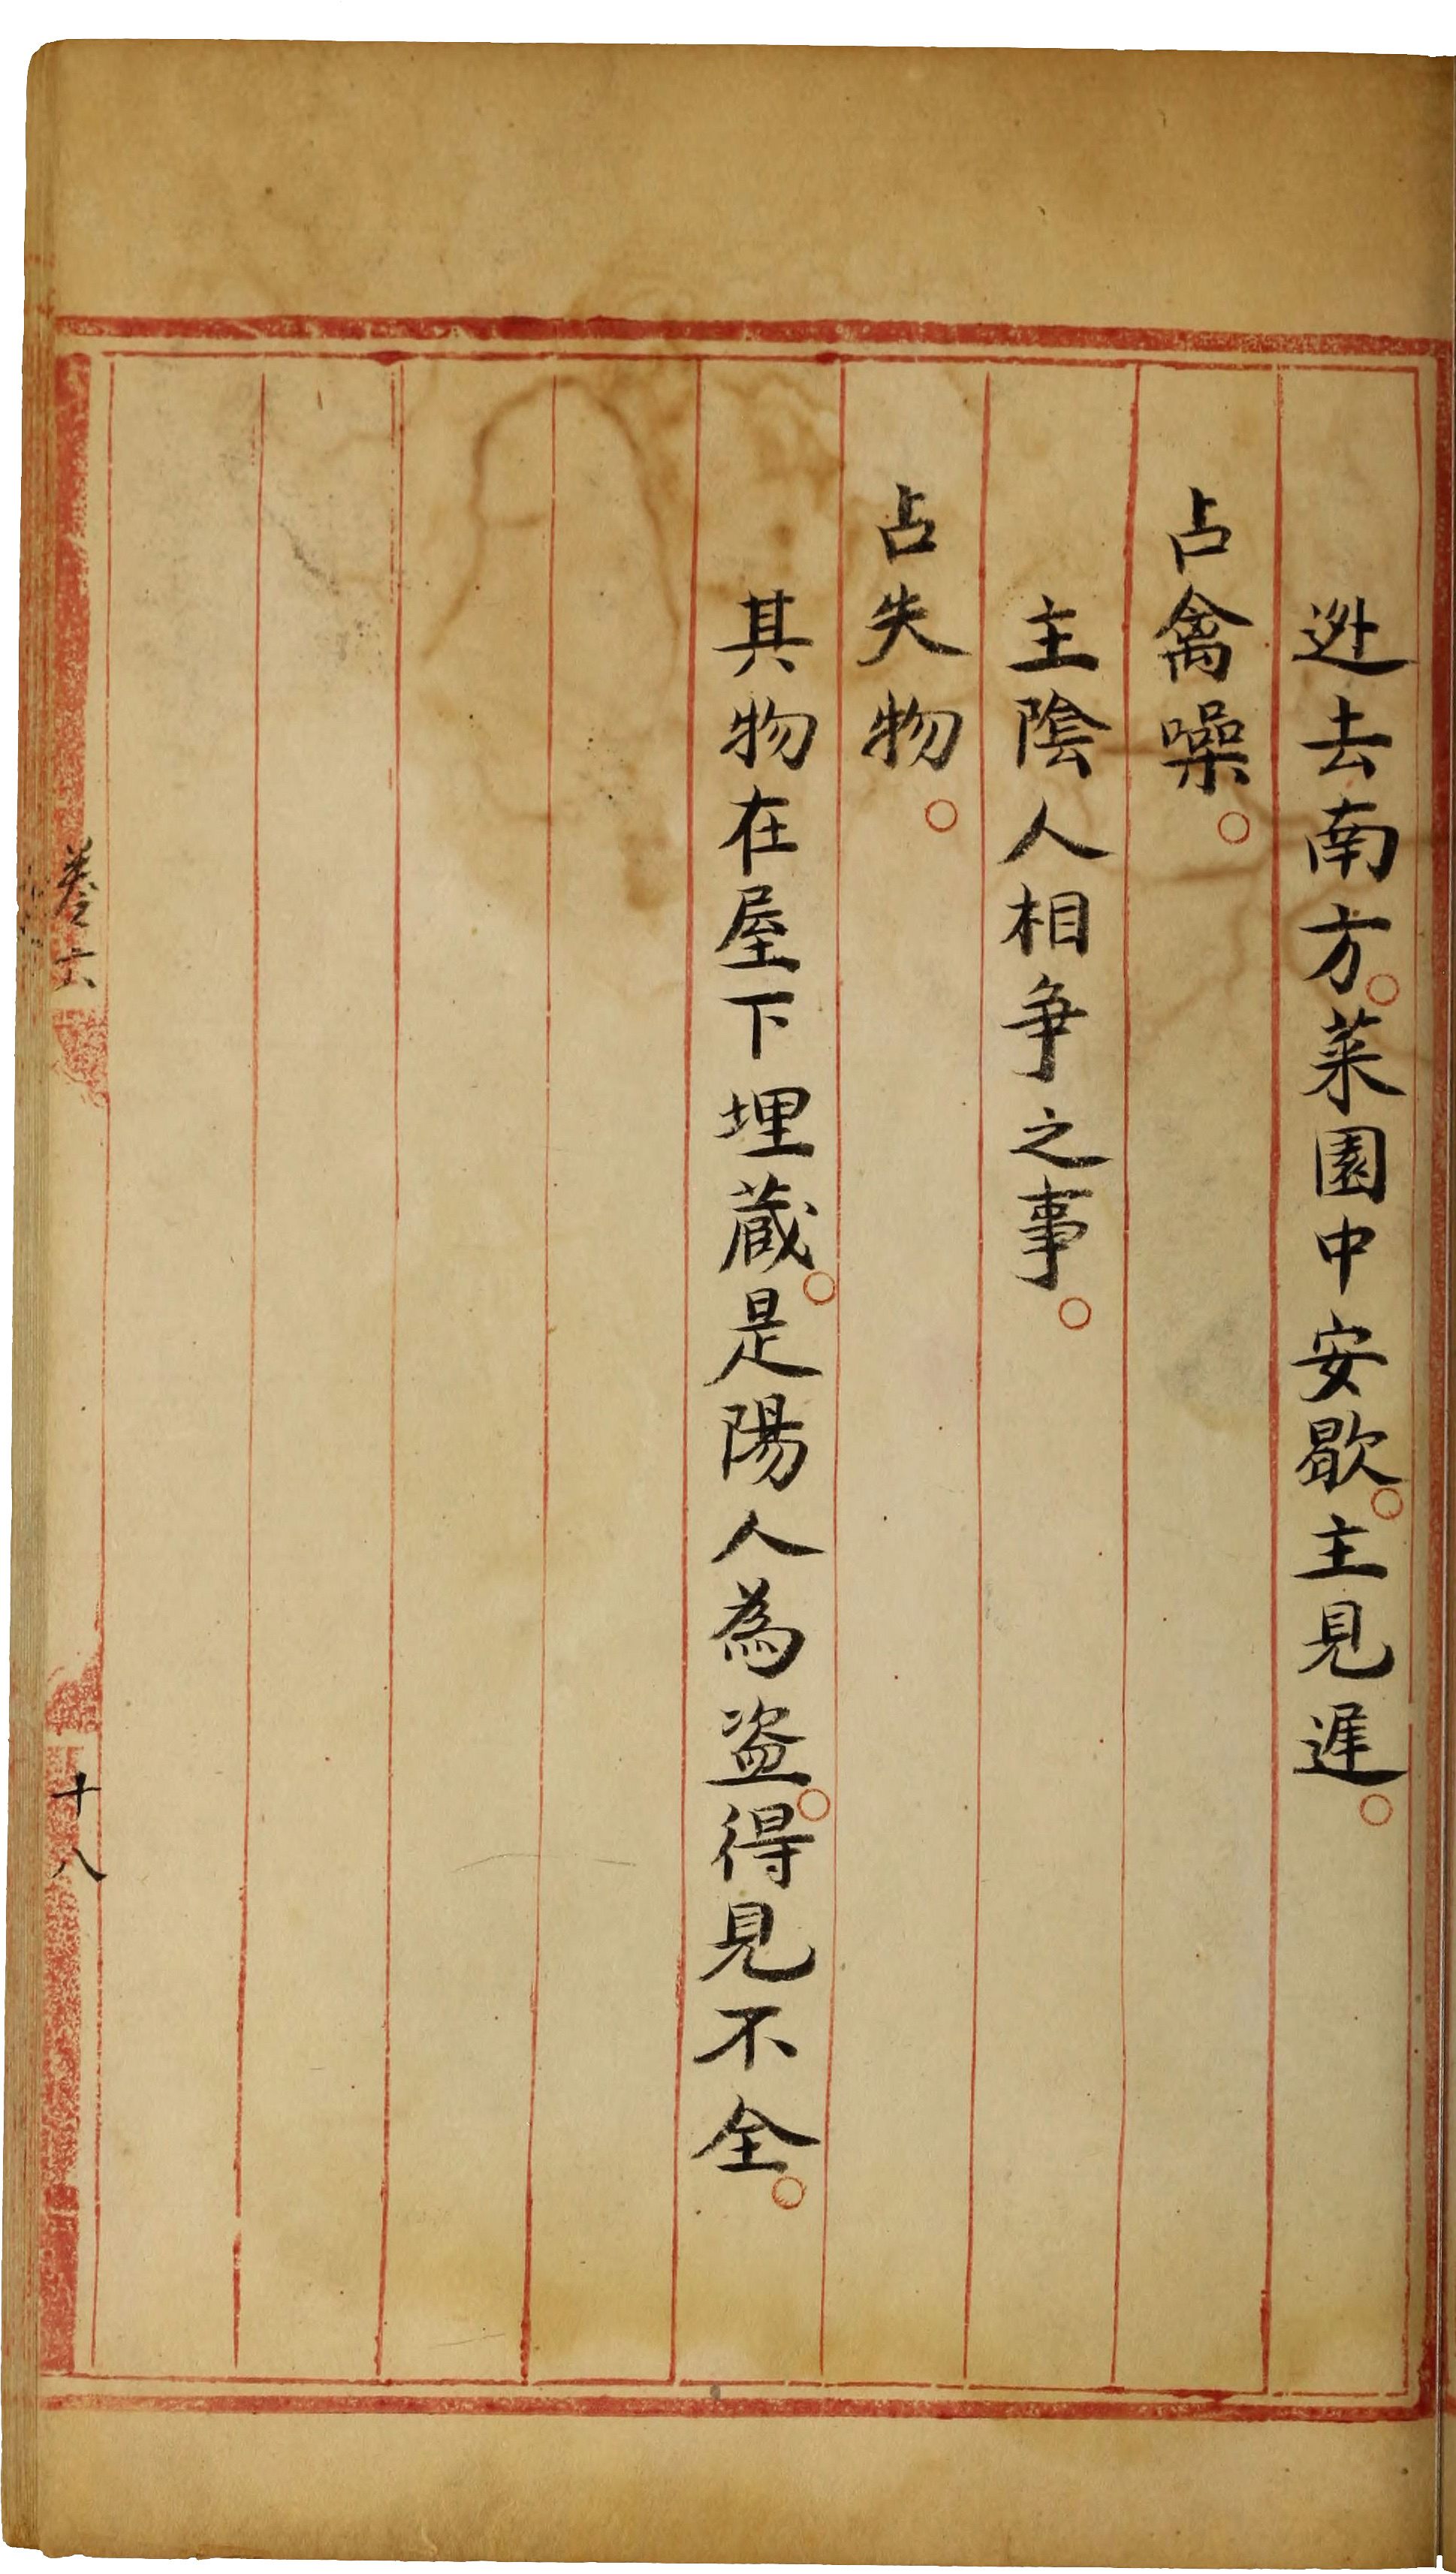 迯去南方。菜園中安歇。主見遅。
占禽噪。
主陰人相争之事。
占失物。
其物在屋下埋蔵。是陽人為盗。得見不全。
卷六
十八